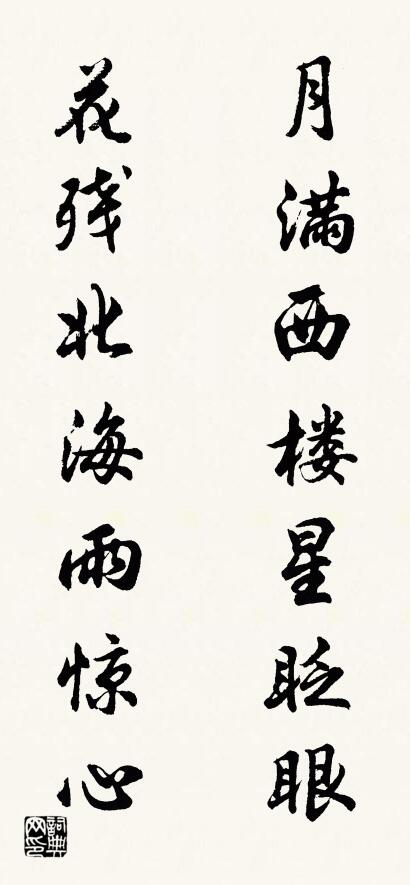 月满西楼星眨眼
花残北海雨惊心
词典网印